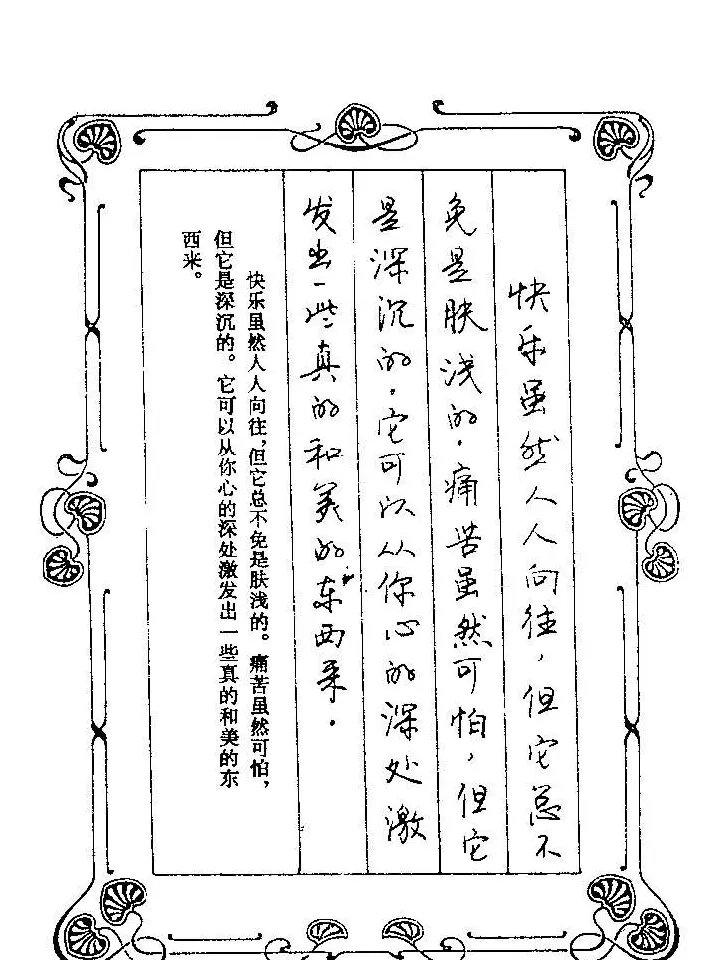 快乐虽然人人向往，但它总不
免是肤浅的。痛苦虽然可怕，但它
是深沉的。它可以从你心的深处激
发出一些真的和美的东西来。
快乐虽然人人向往，但它总不免是肤浅的。痛苦虽然可怕，
但它是深沉的。它可以从你心的深处激发出一些真的和美的东
西来。